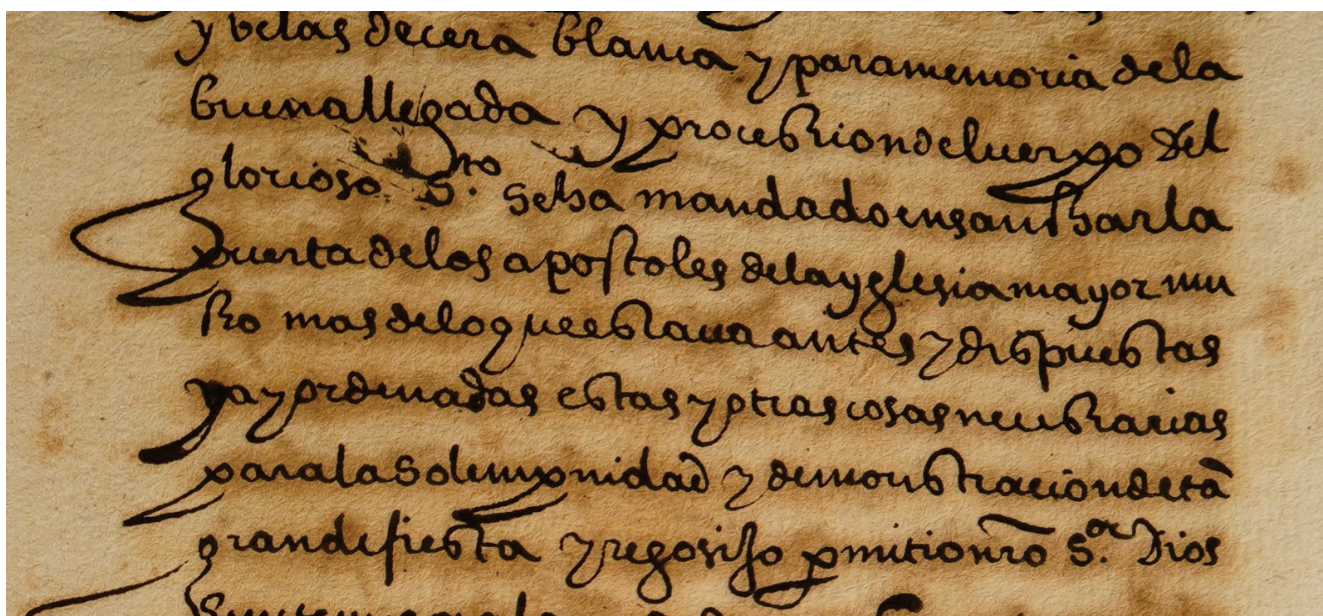 y velas de cera blanca y para memoria de la
buena llegada y procession del cuerpo del
glorioso S.to se ha mandado ensanchar la
puerta de los apostoles de la yglesia mayor mu
cho mas de lo que estava antes y dispuestas
ya y ordenadas estas y otras cosas necessarias
para la solempnidad y demonstracion de tã
grande fiesta y regosijo pmitio nr̃o S.or Dios